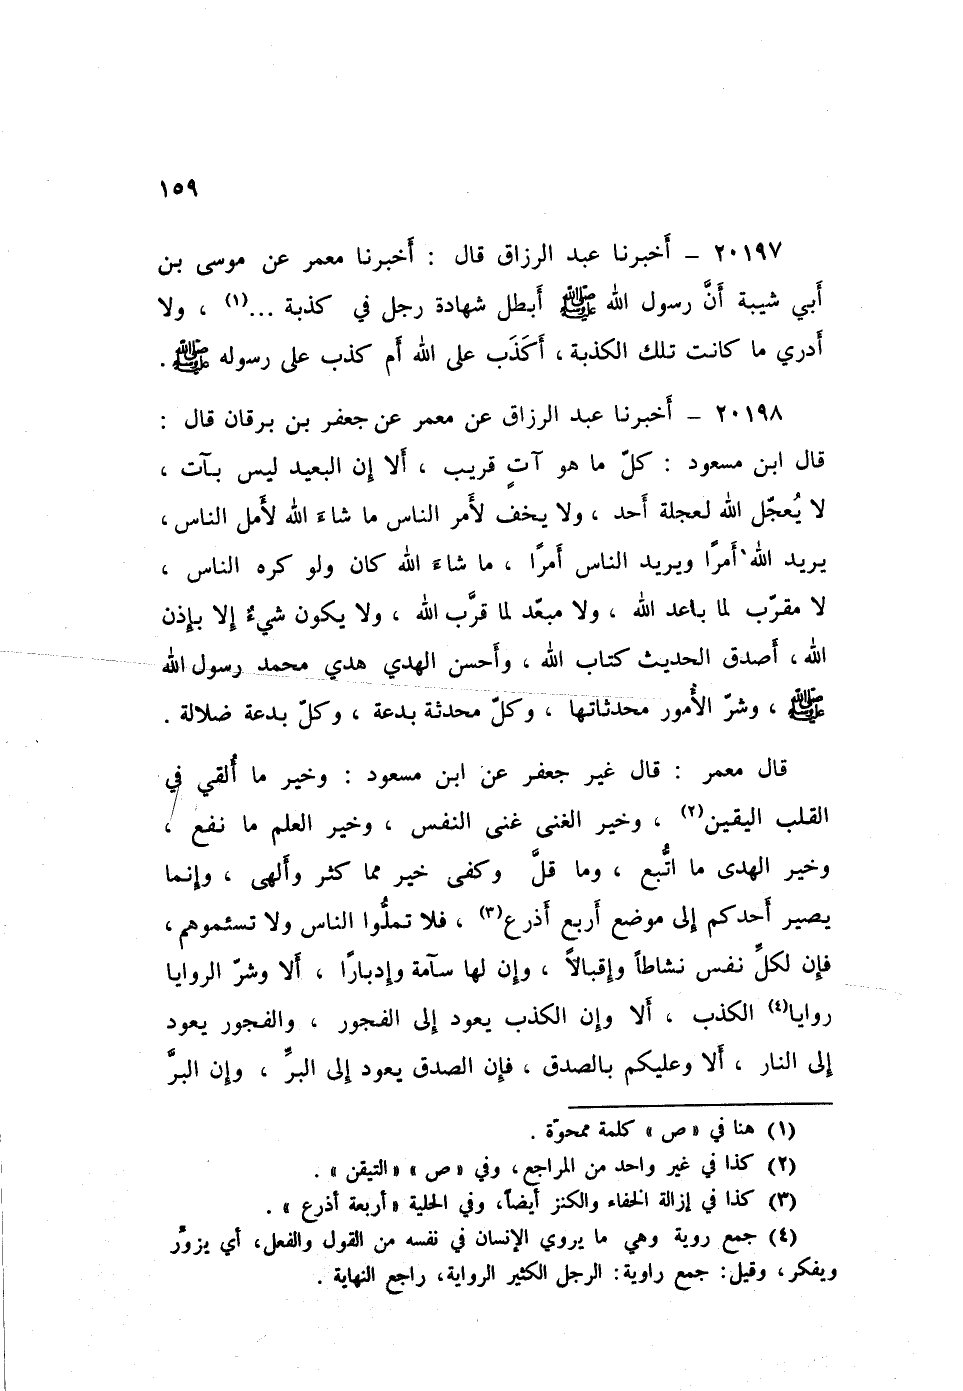 ١٥٩
٢٠١٩٧ – أَخبرنا عبد الرزاق قال : أَخبرنا معمر عن موسى بن
أَبي شيبة أَنَّ رسول الله ﷺ أَبطل شهادة رجل في كذبة ...(١) ، ولا
أَدري ما كانت تلك الكذبة ، أَكَذَب على الله أَم كذب على رسوله ﷺ .
٢٠١٩٨ – أَخبرنا عبد الرزاق عن معمر عن جعفر بن برقان قال :
قال ابن مسعود : كلّ ما هو آتٍ قريب ، أَلا إن البعيد ليس بآت ،
لا يُعجّل الله لعجلة أَحد ، ولا يخف لأَمر الناس ما شاءَ الله لأَمل الناس ،
يريد الله أَمرًا ويريد الناس أَمرًا ، ما شاءَ الله كان ولو كره الناس ،
لا مقرّب لما باعد الله ، ولا مبعّد لما قرَّب الله ، ولا يكون شيءٌ إلا بإذن
الله ، أَصدق الحديث كتاب الله ، وأَحسن الهدي هدي محمد رسول الله
ﷺ ، وشرّ الأُمور محدثاتها ، وكلّ محدثة بدعة ، وكلّ بدعة ضلالة .
قال معمر : قال غير جعفر عن ابن مسعود : وخير ما أُلقي في
القلب اليقين(٢) ، وخير الغنى غنى النفس ، وخير العلم ما نفع ،
وخير الهدى ما اتُّبع ، وما قلَّ وكفى خير مما كثر وأَلهى ، وإنما
يصير أَحدكم إلى موضع أَربع أَذرع(٣) ، فلا تملُّوا الناس ولا تسئموهم ،
فإن لكلِّ نفس نشاطاً وإقبالاً ، وإن لها سآمة وإدبارًا ، أَلا وشرّ الروايا
روايا(٤) الكذب ، أَلا وإن الكذب يعود إلى الفجور ، والفجور يعود
إلى النار ، أَلا وعليكم بالصدق ، فإن الصدق يعود إلى البرِّ ، وإن البرَّ
(١) هنا في «ص» كلمة ممحوّة .
(٢) كذا في غير واحد من المراجع، وفي «ص» «التيقن» .
(٣) كذا في إزالة الخفاء والكنز أيضاً، وفي الحلية «أربعة أذرع» .
(٤) جمع روية وهي ما يروي الإنسان في نفسه من القول والفعل، أي يزوّر
ويفكر، وقيل: جمع راوية: الرجل الكثير الرواية، راجع النهاية .